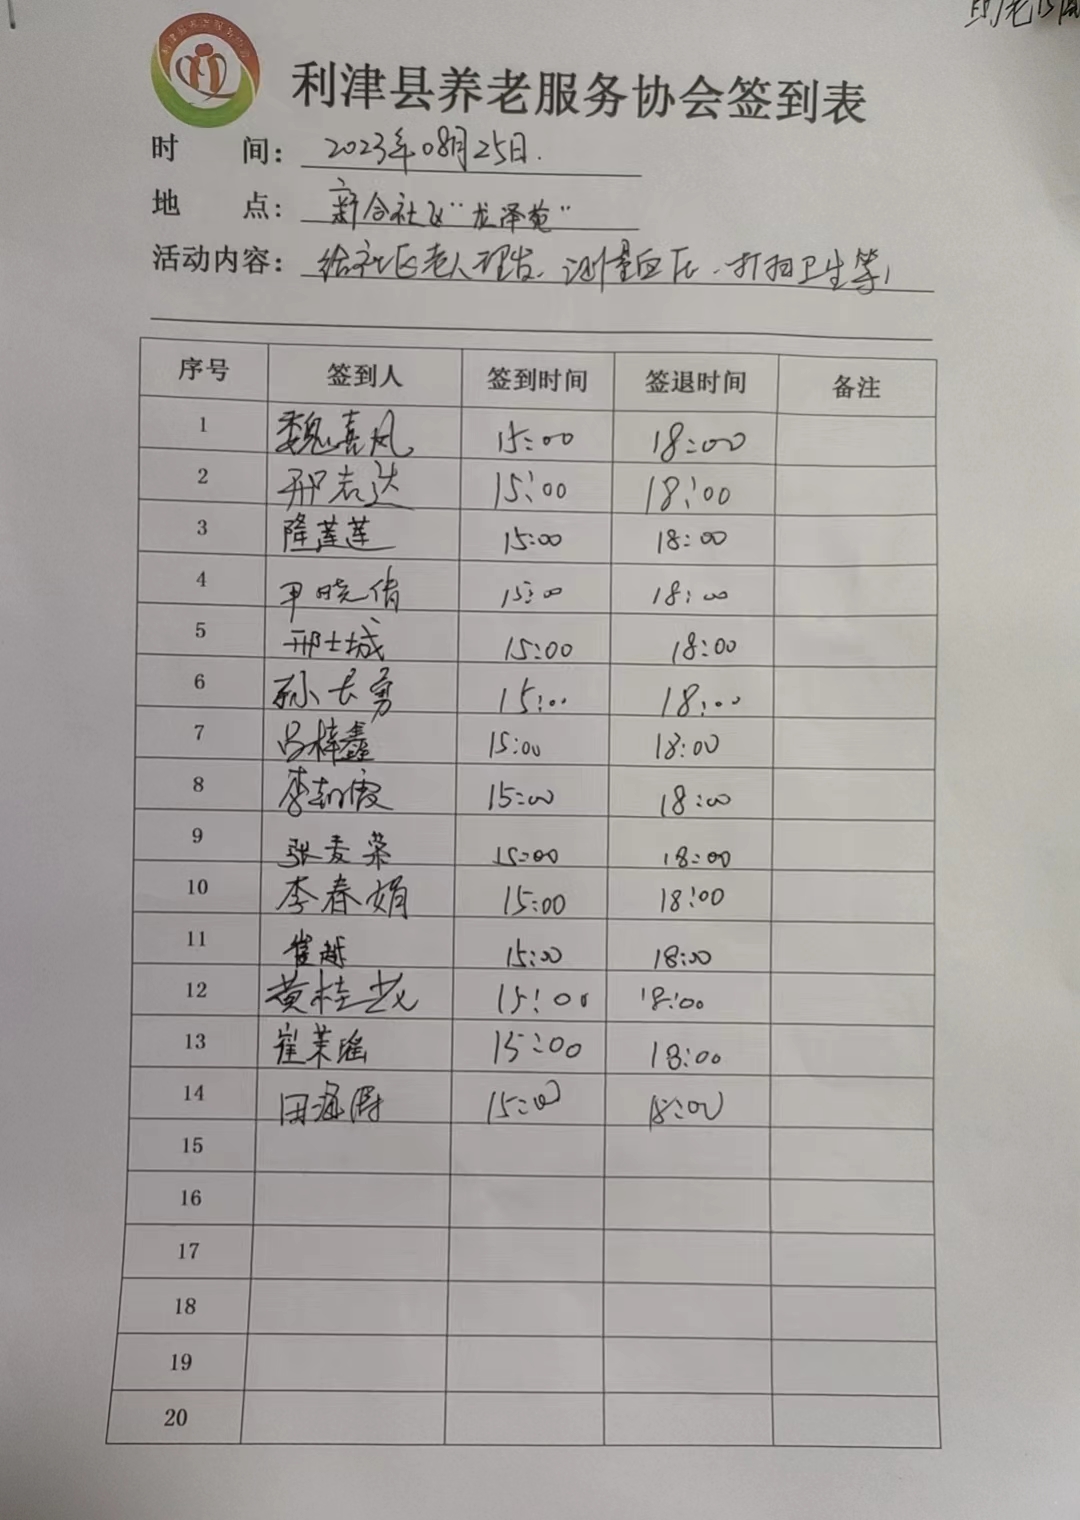 利津县养老服务协会
利津县养老服务协会签到表
时 间: 2023年08月25日.
地 点: 新合社区“龙泽苑”
活动内容: 给社区老人理发、测量血压、打扫卫生等!
序号 签到人 签到时间 签退时间 备注
1 魏喜凤 15:00 18:00
2 邢志达 15:00 18:00
3 隆莲莲 15:00 18:00
4 尹晓倩 15:00 18:00
5 邢士城 15:00 18:00
6 孙长勇 15:00 18:00
7 吕梓鑫 15:00 18:00
8 李霞 15:00 18:00
9 张麦荣 15:00 18:00
10 李春娟 15:00 18:00
11 崔越 15:00 18:00
12 黄桂花 15:00 18:00
13 崔茉瑶 15:00 18:00
14 田海 15:00 18:00
15
16
17
18
19
20